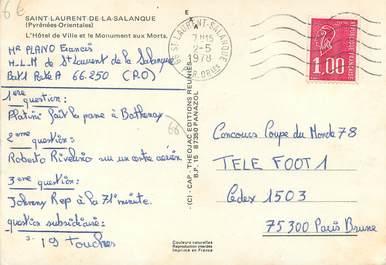 6€
SAINT LAURENT DE-LA-SALANQUE
(Pyrénées-Orientales)
L'Hôtel de Ville et le Monument aux Morts.
Mr PLANO Francis
H.L.M de St Laurent de la Salanque
Bat 1 Porte A 66.250 (P.O)
1ère question:
Platini fait la passe à Bathenay
2ème question:
Roberto Rivelino sur un centre aérien
3eme question:
Johnny Rep à la 71e minute.
question subsidiaire:
19 touches
66
E
(C) - CAP - THEOJAC EDITIONS REUNIES
B.P. 15 87350 PANAZOL
Couleurs naturelles
Reproduction interdite
Imprimé en France
66 ST-LAURENT-SALANQUE
7H15
2-5
1978
PYR. ORIES
1,00
Concours Coupe du Monde 78
TELE FOOT 1
Cedex 1503
75300 Paris Brune